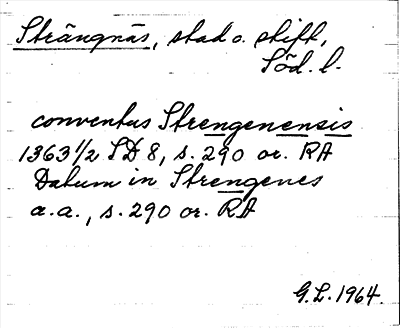 Strängnäs, stad o. stift,
Söd. l.
conventus Strengenensis
1363 1/2 SD 8, s. 290 or. RA
Datum in Strengenes
a.a., s. 290 or. RA
G.L. 1964.